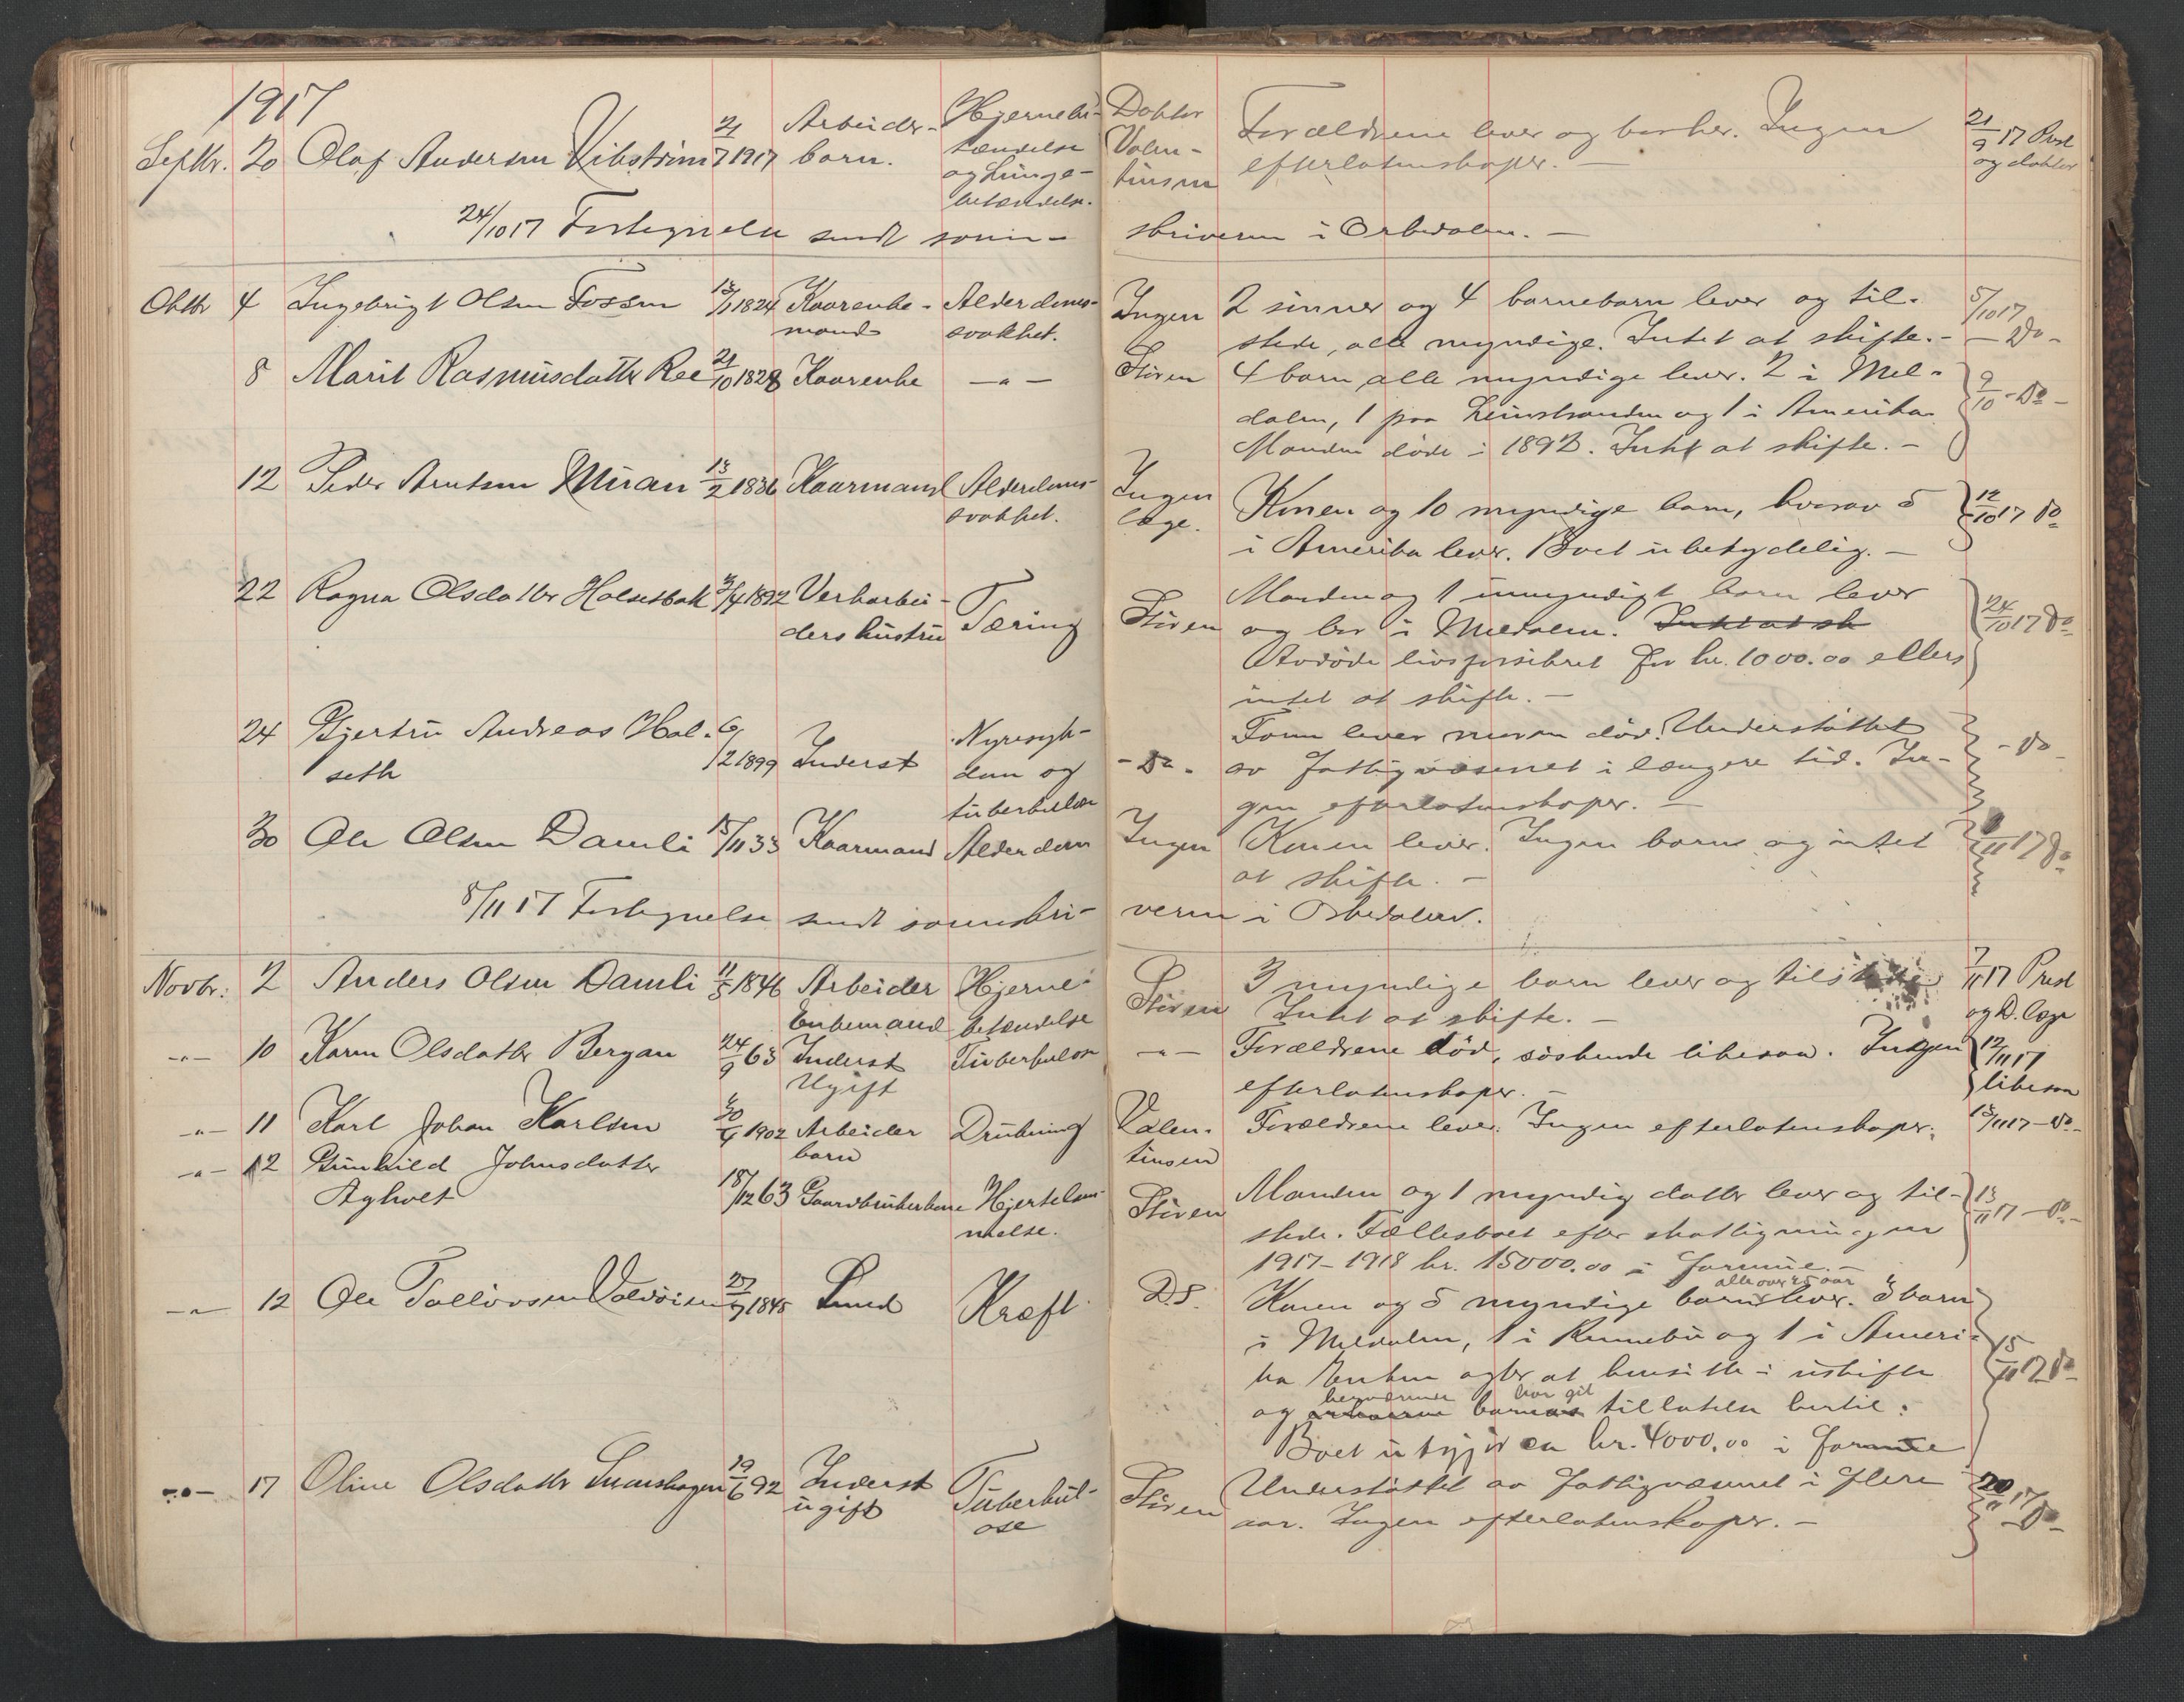 1917
Septbr. 20 Olaf Andersen Vikstrøm 21/7 1917 Arbeider- Hjernebe- Doktor Forældrene lever og bor her. Ingen 21/9 17 Prest
barn. tændelse Valen- efterlatenskaper. — og doktor
og Lunge- tinsen
betændelse.
24/10 17 Fortegnelse sendt soren- skriveren i Orkedalen. —
Oktbr 4 Ingebrigt Olsen Fossen 13/11 1824 Kaarenke- Alderdoms- Ingen 2 sønner og 4 barnebarn lever og til- 5/10 17
mand svakhet. stede, alle myndige. Intet at skifte. - — Do -
8 Marit Rasmusdatter Ree 21/10 1828 Kaarenke — " — Støren 4 barn alle myndige lever. 2 i Mel- 9/10 - Do -
dalen, 1 paa Leinstranden og 1 i Amerika
Manden døde i 1892. Intet at skifte. -
12 Peder Arntsen Muan 13/2 1836 Kaarmand Alderdoms- Ingen Konen og 10 myndige barn, hvorav 5 12/10 17 Do
svakhet. læge. i Amerika lever. Boet ubetydelig. —
22 Ragna Olsdatter Holsetbak 3/4 1892 Verkarbei- Tæring Støren Manden og 1 umyndigt barn lever 24/10 17 Do
ders hustru og bor i Meldalen. Intet at sk
Avdøde livsforsikret for kr. 1000.00 ellers
intet at skifte. —
24 Gjertru Andreas Hol- 6/12 1899 Inderst Nyresyk- - Do - Faren lever moren død. Understøttet - Do -
seth dom og av fattigvæsenet i længere tid. In-
tuberkulose gen efterlatenskaper. —
30 Ole Olsen Damli 15/11 33 Kaarmand Alderdom Ingen Konen lever. Ingen barn og intet /11 17 Do
at skifte. —
8/11 17 Fortegnelse sendt sorenskri- veren i Orkedalen.
Novbr: 2 Anders Olsen Damli 11/5 1846 Arbeider Hjerne- Støren 3 myndige barn lever og tilstede 7/11 17 Prest
Enkemand betændelse Intet at skifte. — og D. læge
-"- 10 Karen Olsdatter Bergan 24/9 63 Inderst Tuberkulose — " — Forældrene død, søskende likesaa. Ingen 12/11 17
Ugift efterlatenskaper. — likesaa
-"- 11 Karl Johan Karlsen 1902 Arbeider Drukning Valen- Forældrene lever. Ingen efterlatenskaper. 13/11 17 - Do -
barn tinsen
-"- 12 Gunhild Johnsdatter
Agholt 18/12 63 Gaardbrukerkone Hjertelam- Støren Manden og 1 myndig datter lever og til- 13/11 17 - Do -
melse. stede. Fællesboet efter skatligningen
1917-1918 kr. 15000.00 i formue. —
-"- 12 Ole Tollevsen 27/9 1845 Kræft D.S. Konen og 5 myndige barn lever. 3 barn
alle over 25 aar
i Meldalen, 1 i Rennebu og 1 i Ameri- 15/11 17 Do
ka Enken agter at hensitte i uskifte
begværende har git
og barnas tillatelse hertil.
Boet utgjør ca kr. 4000.00 i formue
-"- 17 Oline Olsdatter 19/6 92 Inderst Tuberkul- Støren Understøttet av fattigvæsenet i flere 20/11 17
ugift ose aar. Ingen efterlatenskaper. — - Do -